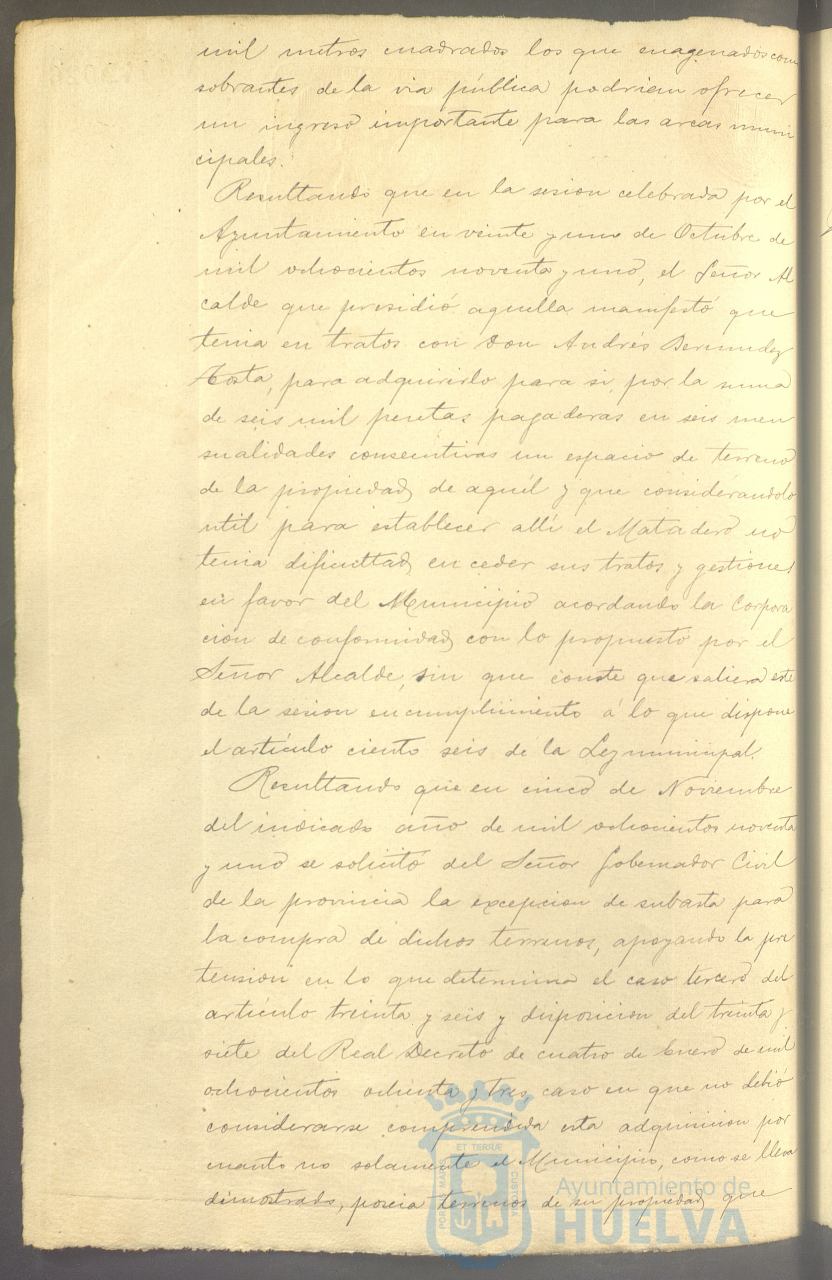 mil metros cuadrados los que enagenados como
sobrantes de la via pública podrian ofrecer
un ingreso importante para las arcas muni
cipales.
Resultando que en la sesion celebrada por el
Ayuntamiento en veinte y uno de Octubre de
mil ochocientos noventa y uno, el Señor Al
calde que presidió aquella manifestó que
tenia en tratos con Don Andrés Bermudez
para adquirirlo para si, por la suma
de seis mil pesetas pagaderas en seis men
sualidades consecutivas un espacio de terreno
de la propiedad de aquél y que considerandolo
util para establecer allí el Matadero no
tenia dificultad en ceder sus tratos y gestiones
en favor del Municipio acordando la Corpora
cion de conformidad con lo propuesto por el
Señor Alcalde, sin que conste que saliera este
de la sesion en cumplimiento á lo que dispone
el artículo ciento seis de la Ley municipal.
Resultando que en cinco de Noviembre
del indicado año de mil ochocientos noventa
y uno se solicitó del Señor Gobernador Civil
de la provincia la excepcion de subasta para
la compra de dichos terrenos, apoyando la pre
tension en lo que determina el caso tercero del
artículo treinta y seis y disposicion del treinta y
siete del Real Decreto de cuatro de Enero de mil
ochocientos ochenta y tres, caso en que no debió
considerarse comprendida esta adquisicion por
cuanto no solamente el Municipio, como se lleva
dimostrado, poseia terrenos de su propiedad que
PORTUS MARIS ET TERRÆ CUSTODIA
Ayuntamiento de
HUELVA